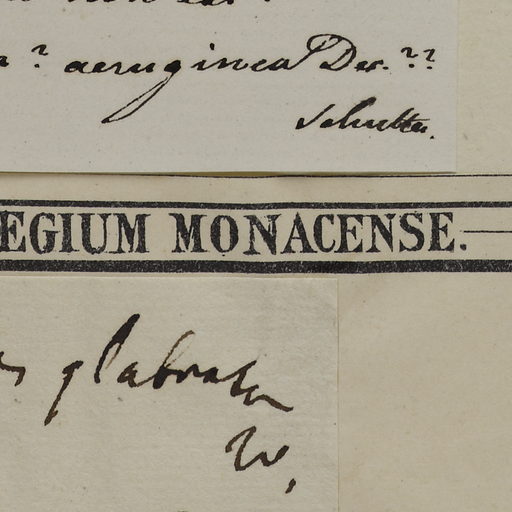 ? aeruginea Dec. ??
Schultes.
EGIUM MONACENSE.
glabrata
W.